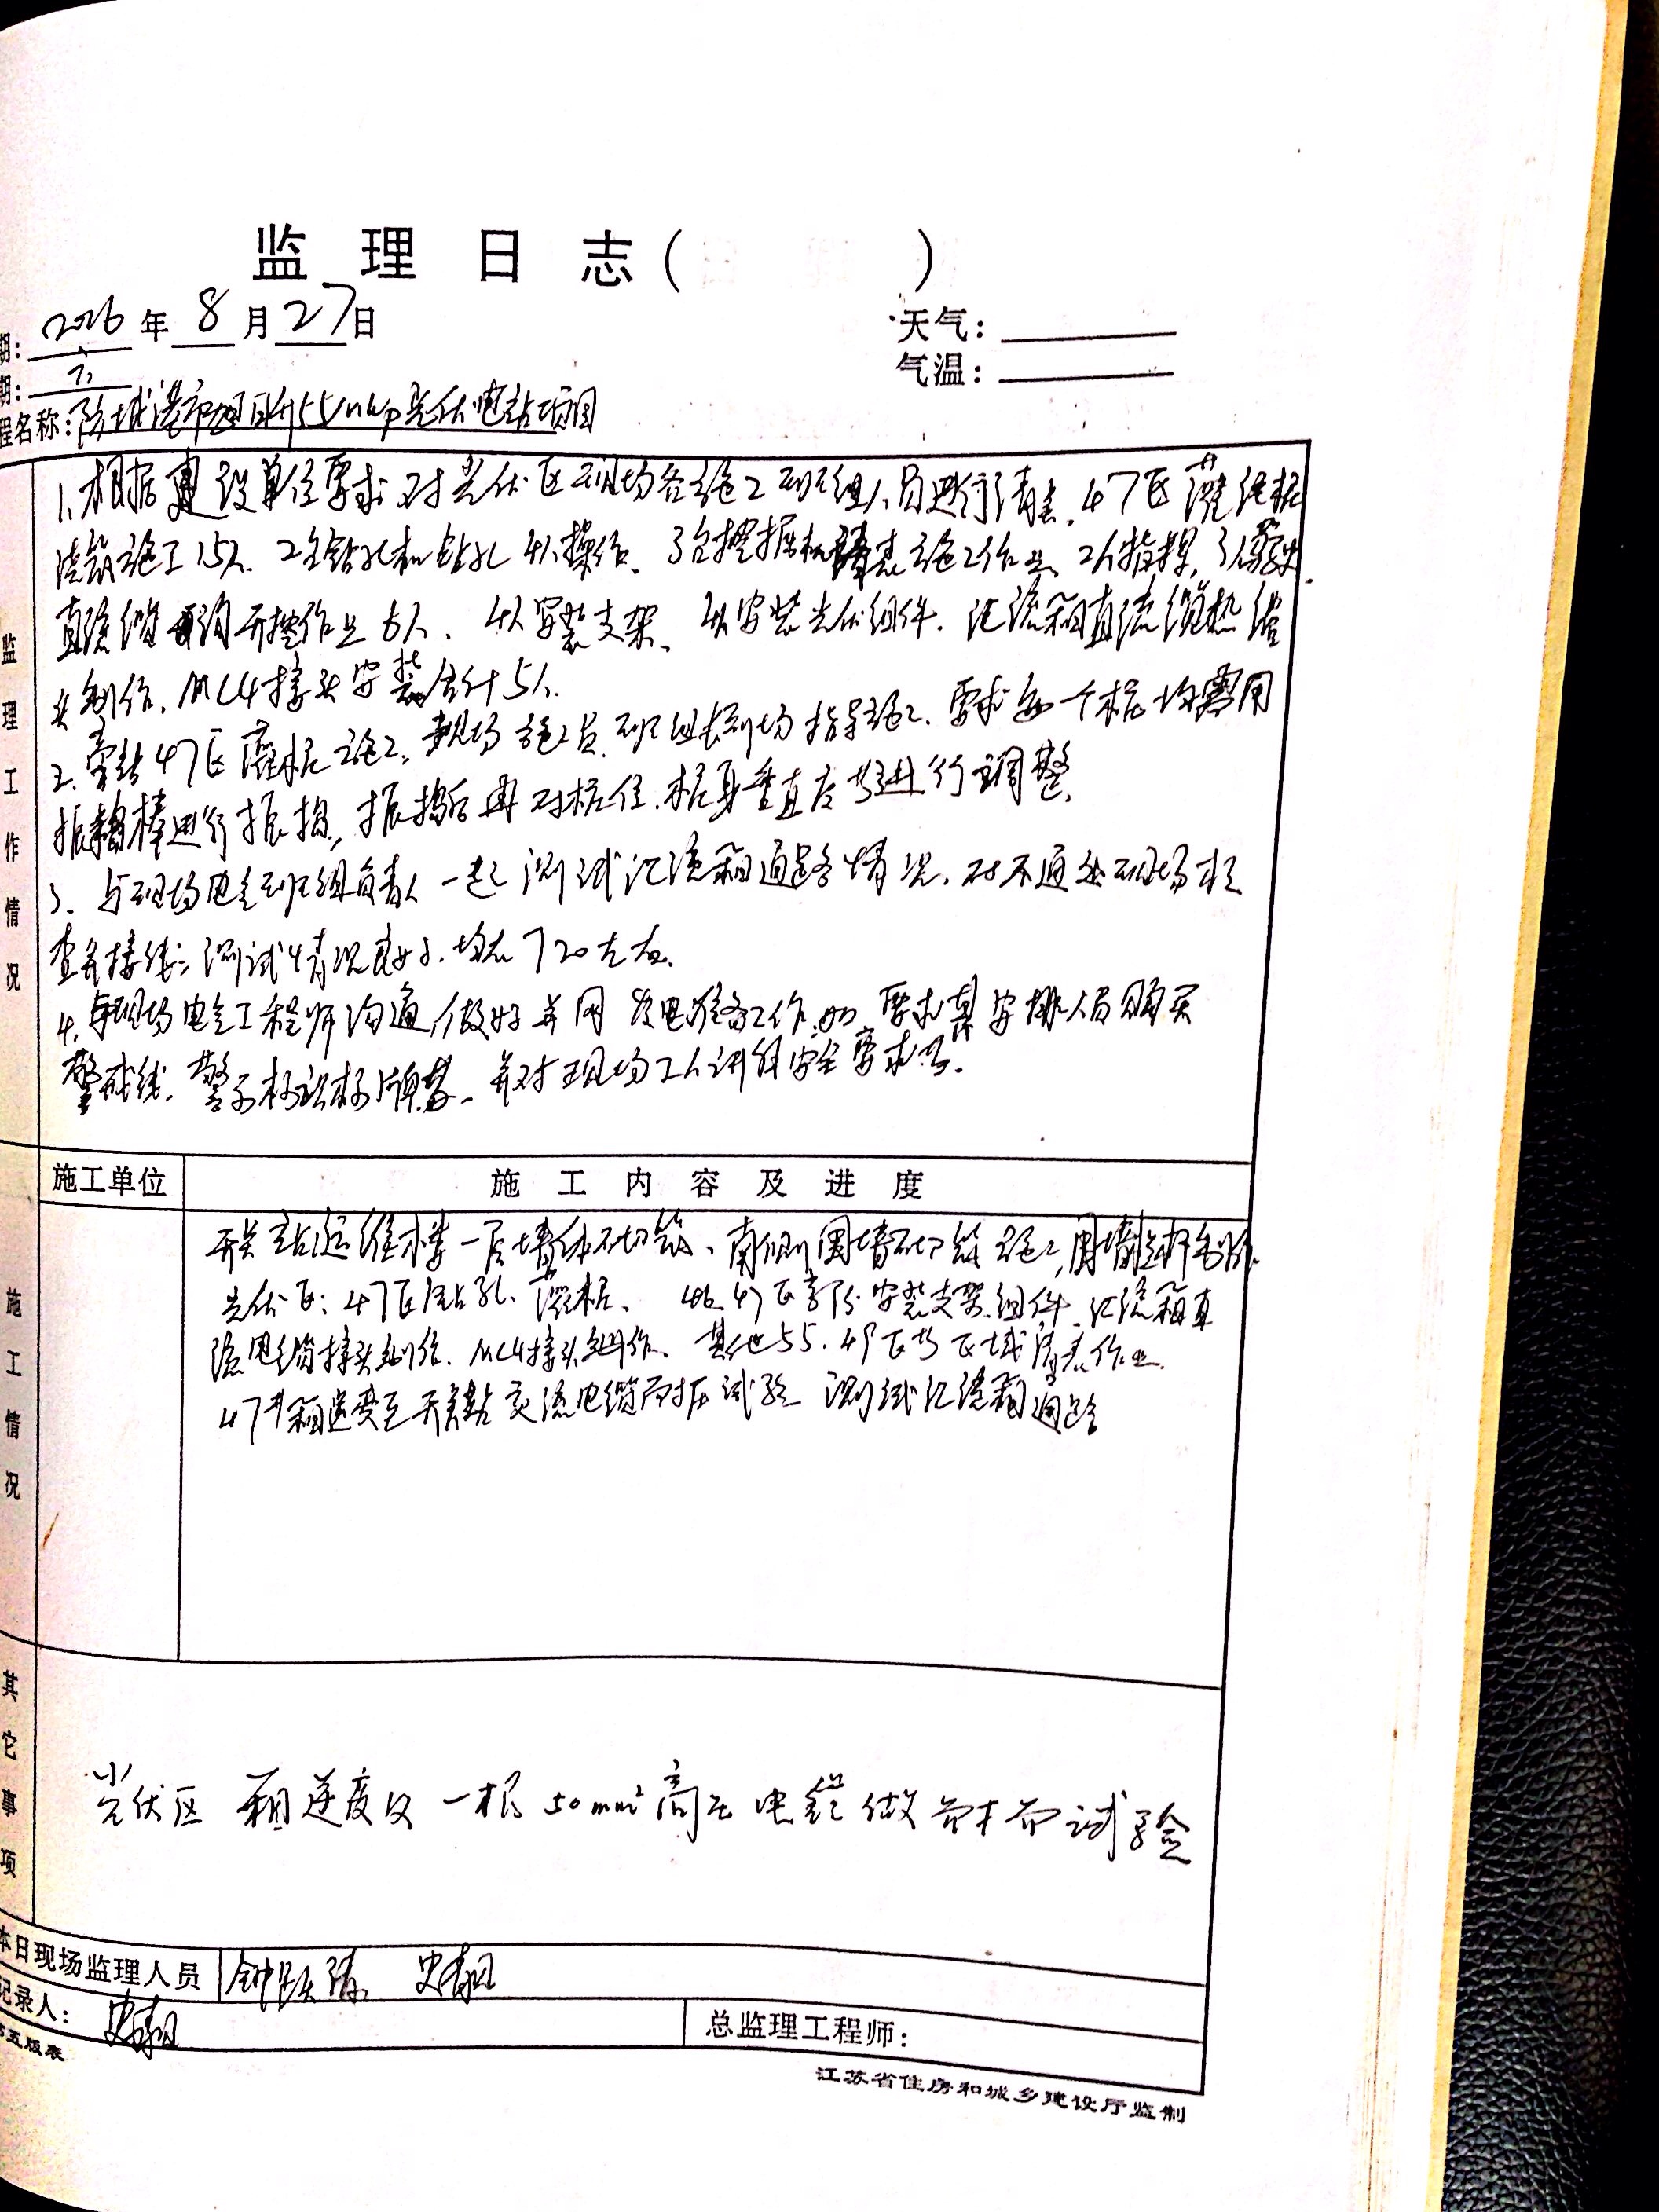 监理日志( )
期: 2026 年 8 月 27 日
天气:
期: 六
气温:
程名称: 防城港市 55MWp光伏电站项目
监理工作情况
1、根据建设单位要求对光伏区现场各施工班组人员进行清点,47区灌注桩
浇筑施工15人、2台钻孔机钻孔4人操作、3台挖掘机清表施工作业、2人指挥,3人驾驶
直流缆沟开挖作业6人、4人安装支架、 安装光伏组件.汇流箱直流缆热缩
头制作,MC4接头安装合计5人.
2、旁站47区灌桩施工,现场施工员、班组长到场指导施工、要求每一个桩均需用
振捣棒进行振捣,振捣后再对桩位、桩身垂直度等进行调整.
3、与现场电气班组负责人一起测试汇流箱通路情况,对不通处现场检
查并接线;测试情况良好,均在720左右.
4、与现场电气工程师沟通,做好并网发电准备工作,如要求其安排人员购买
警戒线、警示标识标牌等,并对现场工人讲解安全要求等.
施工单位
施工内容及进度
施工情况
开关站运维楼一层墙体砌筑、南侧围墙砌筑施工,围墙栏杆制作.
光伏区:47区钻孔、灌桩、46、47区部分安装支架、组件、汇流箱直
流电缆接头制作、MC4接头制作、其他55、49区等区域清表作业.
47#箱逆变至开关站交流电缆耐压试验 测试汇流箱通路
其它事项
光伏区 箱逆 一根50mm²高压电缆做 试验
本日现场监理人员
记录人:
总监理工程师:
第五版表
江苏省住房和城乡建设厅监制